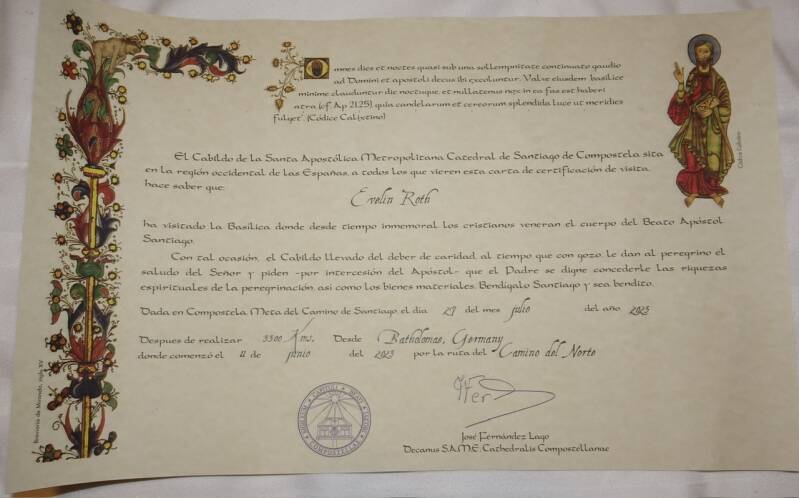 Omnes dies et noctes quasi sub una sollempnitate continuato gaudio
ad Domini et apostoli decus ibi excoluntur. Valve eiusdem basilice
minime clauduntur die noctuque, et nullatenus nox in ea fas est haberi
atra (cf. Ap 21,25), quia candelarum et cereorum splendida luce ut meridies
fulget". (Códice Calixtino)
El Cabildo de la Santa Apostólica Metropolitana Catedral de Santiago de Compostela sita
en la región occidental de las Españas, a todos los que vieren esta carta de certificación de visita,
hace saber que:
Evelin Roth
ha visitado la Basílica donde desde tiempo inmemorial los cristianos veneran el cuerpo del Beato Apóstol
Santiago.
Con tal ocasión, el Cabildo llevado del deber de caridad, al tiempo que con gozo, le dan al peregrino el
saludo del Señor y piden -por intercesión del Apóstol- que el Padre se digne concederle las riquezas
espirituales de la peregrinación, así como los bienes materiales. Bendígalo Santiago y sea bendito.
Dada en Compostela, Meta del Camino de Santiago, el día 27 del mes julio del año 2023
Despues de realizar 3300 Kms, Desde Batholomae, Germany
donde comenzó el 11 de junio del 2023 por la ruta del Camino del Norte
José Fernández Lago
Decanus S.A.M.E. Cathedralis Compostellanae
Breviario de Miranda, siglo XV